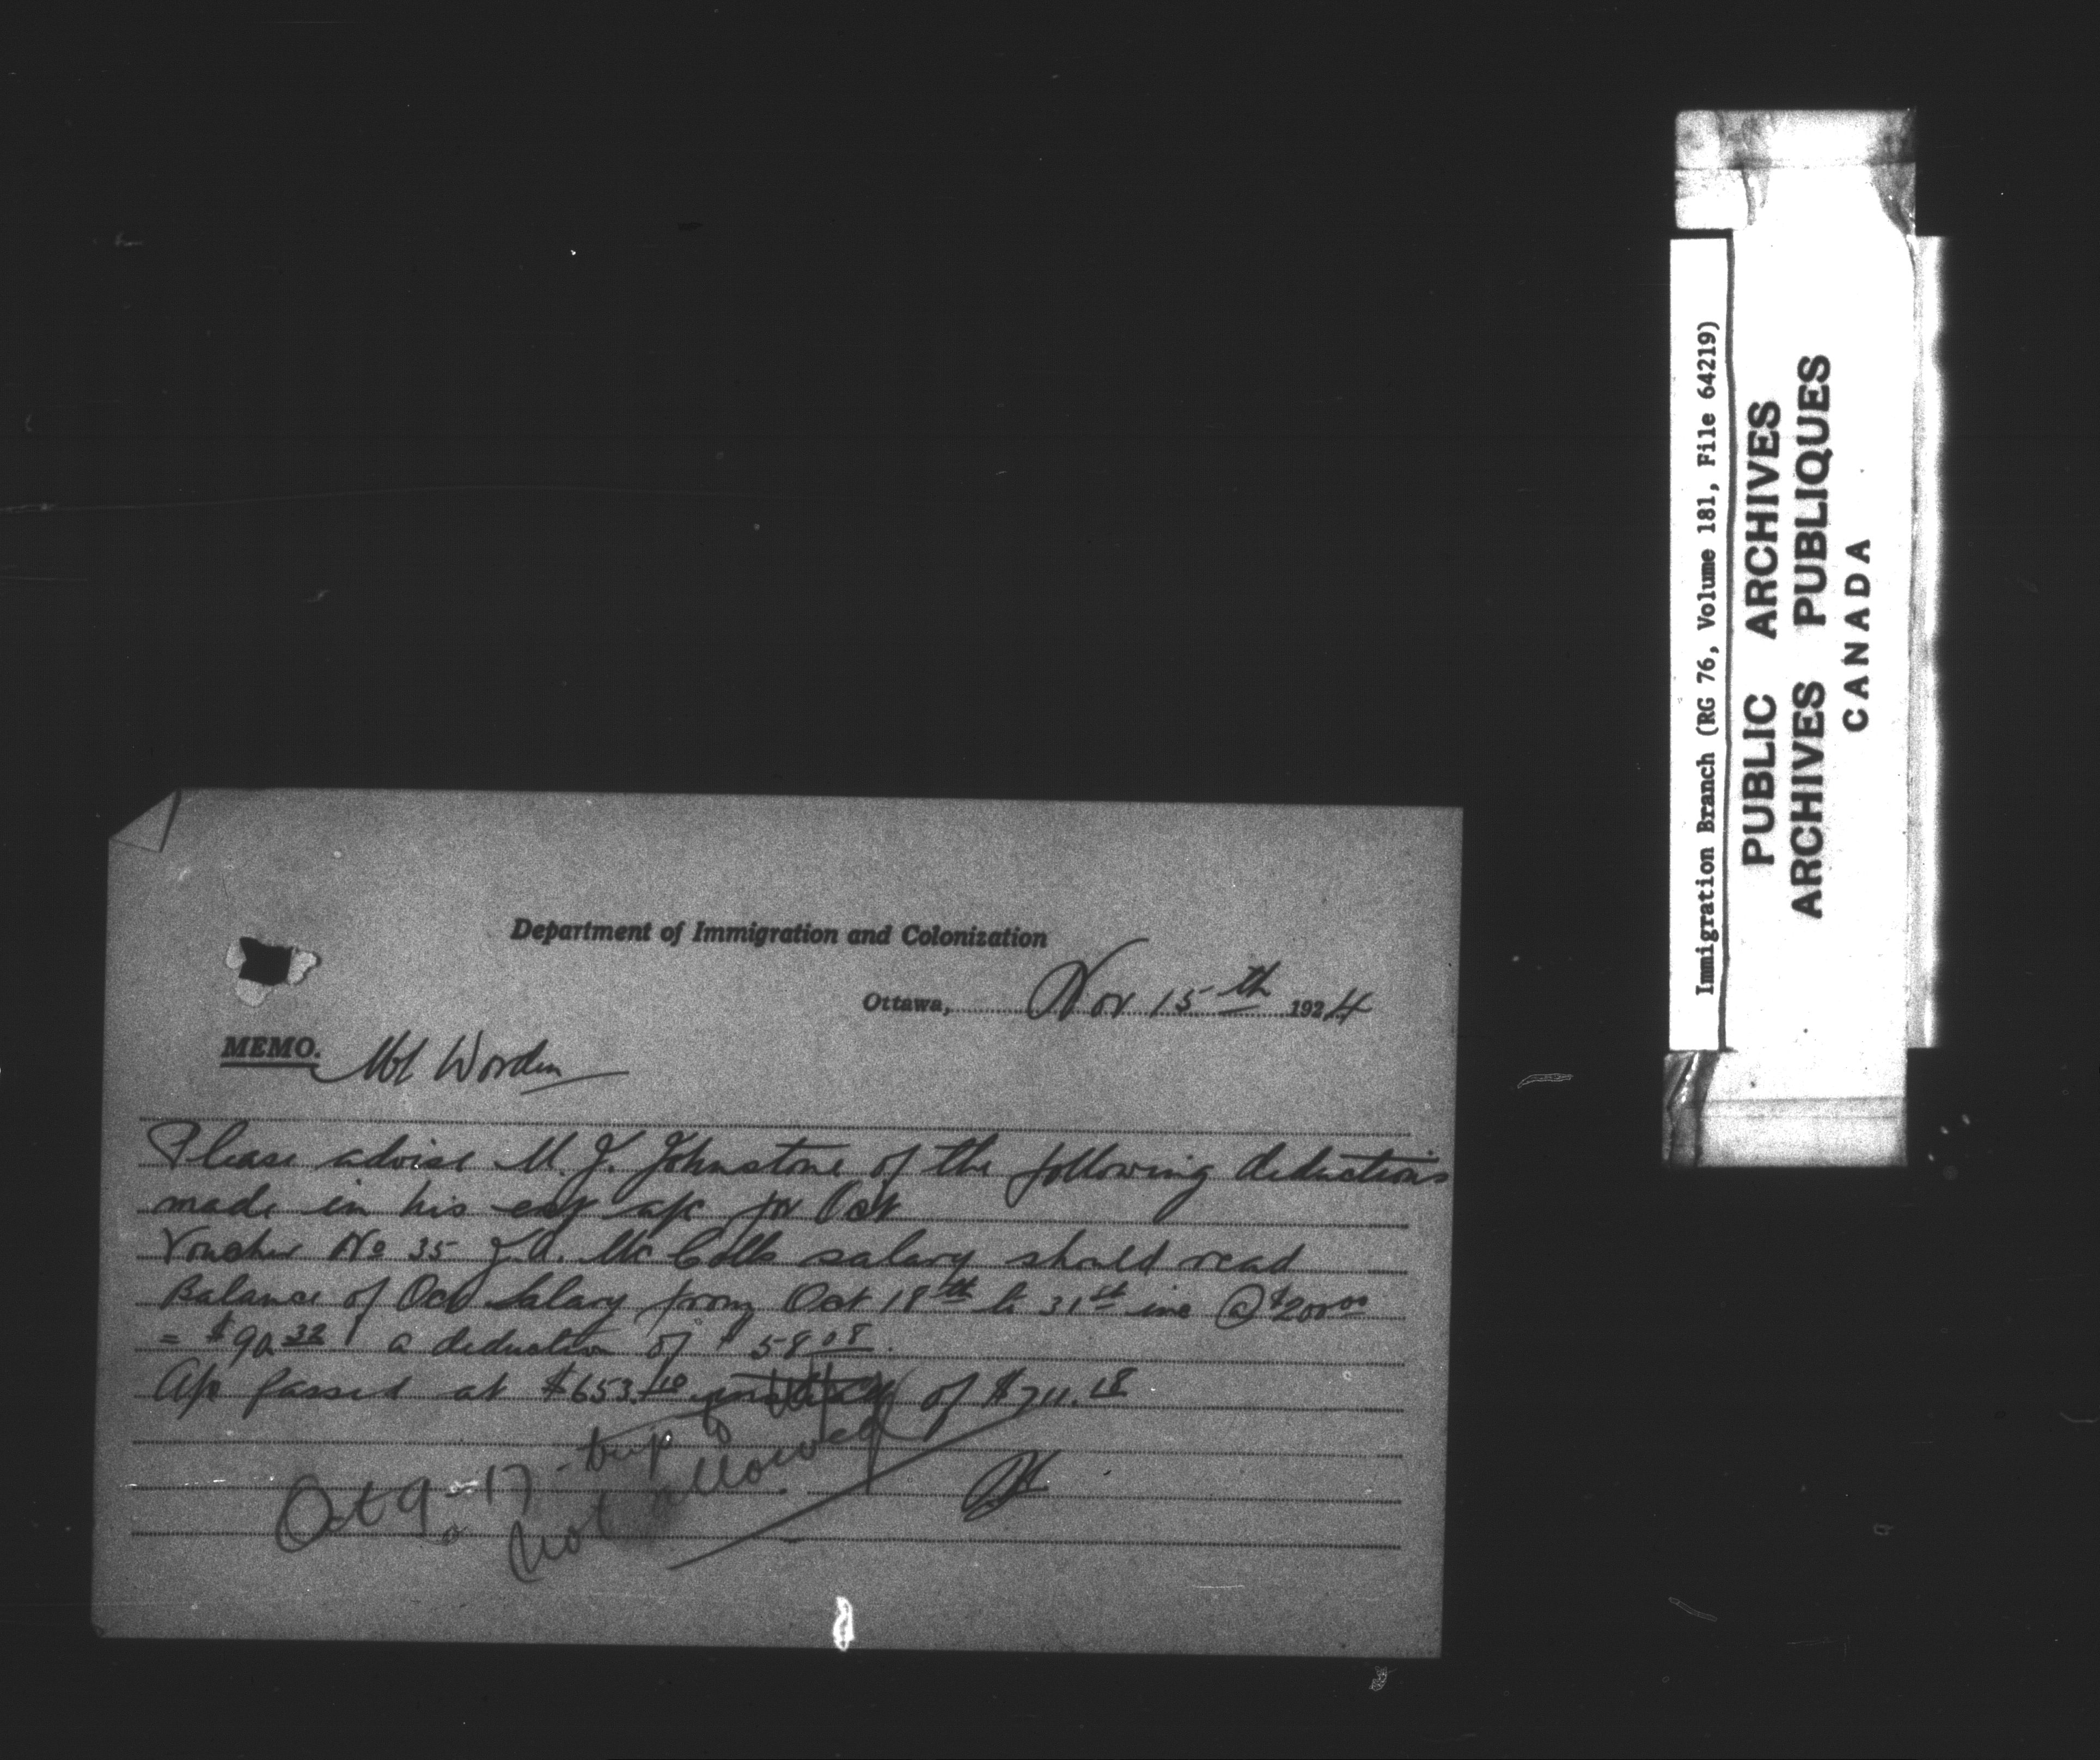 Department of Immigration and Colonization
Ottawa, Nov 15th 1924
MEMO. Mr Worden
Please advise M. J. Johnstone of the following deductions
made in his exp a/c for Oct
Voucher No 35 J. A. Mc Colls salary should read
Balance of Oct Salary from Oct 18th to 31st inc @ $200.00
= $90.32 a deduction of $58.08.
A/c passed at $653.10 instead of $711.18
Oct 9 - 17 - trip
not allowed
Immigration Branch (RG 76, Volume 181, File 64219)
PUBLIC ARCHIVES
ARCHIVES PUBLIQUES
CANADA